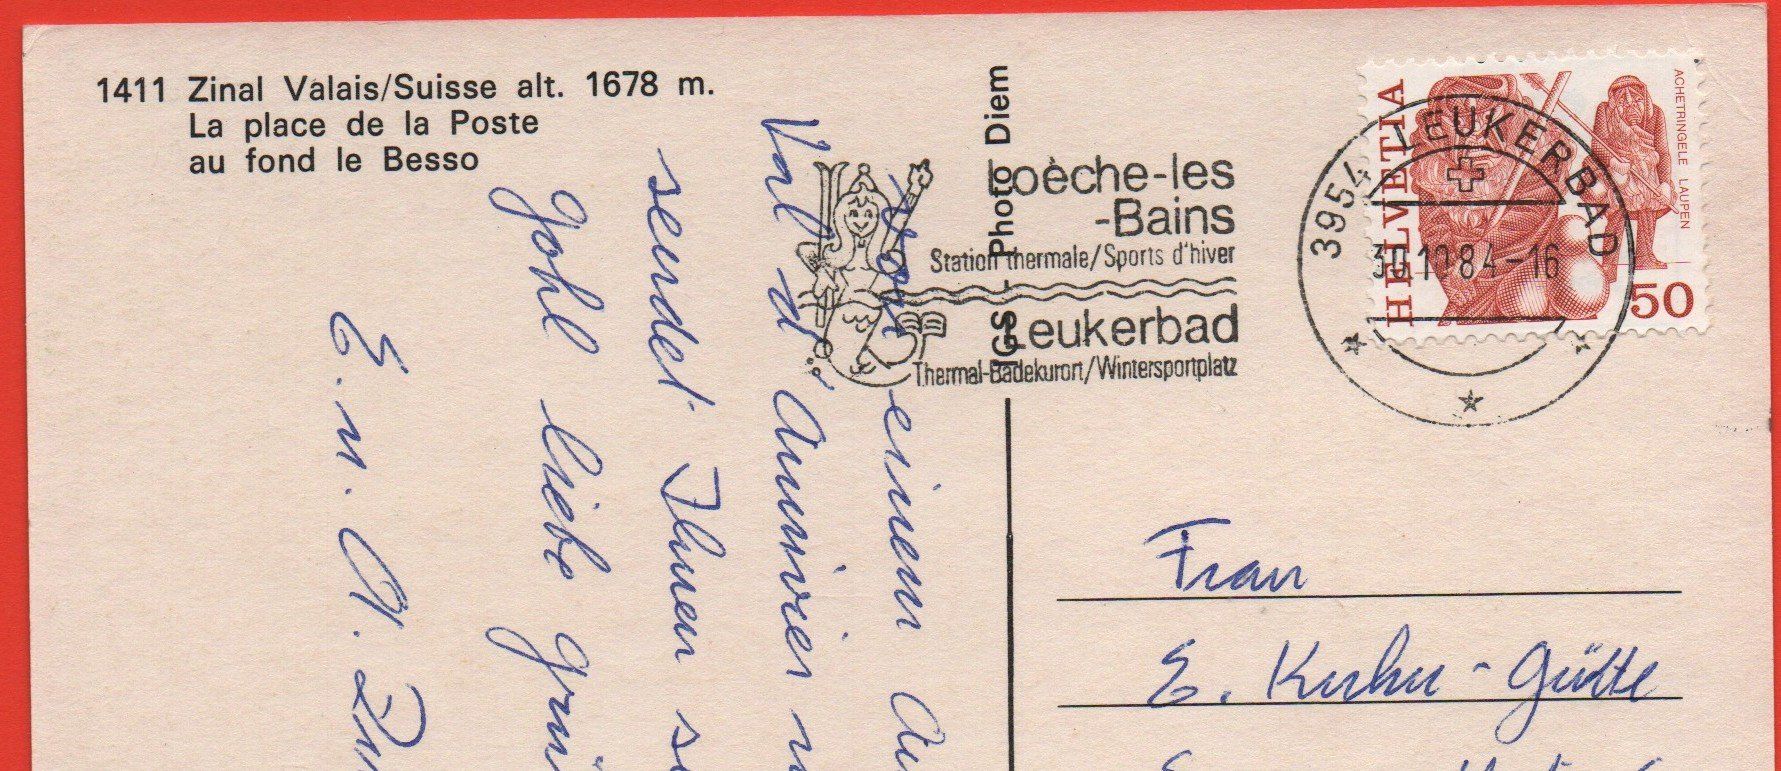 1411 Zinal Valais/Suisse alt. 1678 m.
La place de la Poste
au fond le Besso
IGS - Photo Diem
Loèche-les
-Bains
Station thermale/Sports d'hiver
Leukerbad
Thermal-Badekurort/Wintersportplatz
3954 LEUKERBAD
84-16
HELVETIA
ACHETRINGELE LAUPEN
50
Von einem Au
Val d'Anniviers
sendet Ihnen
liebe Grü
E. u. A.
Frau
E. Kuhn-Gütte